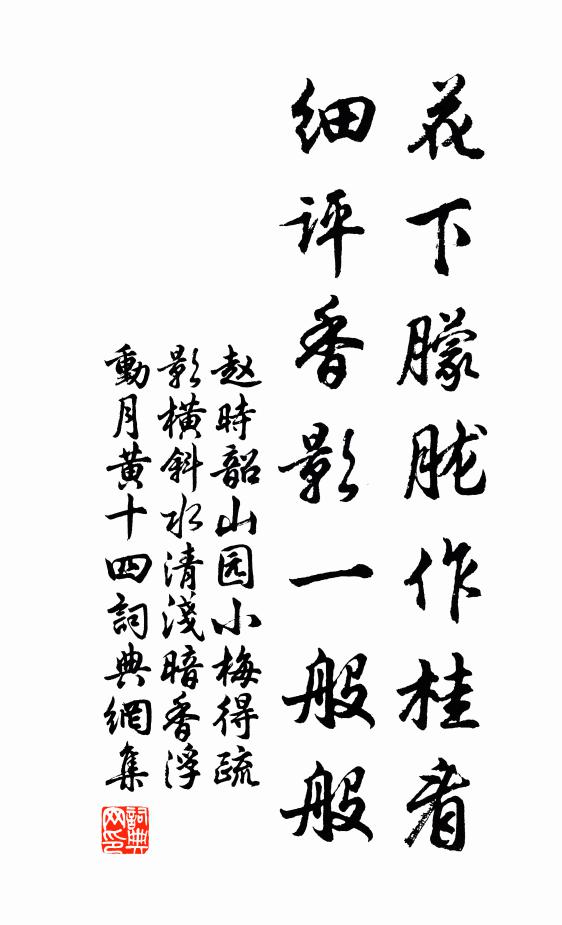 花下朦胧作桂看
细评香影一般般
赵時韶山园小梅得疏
影橫斜水清淺暗香浮
動月黄十四詞典網集
詞典
网印